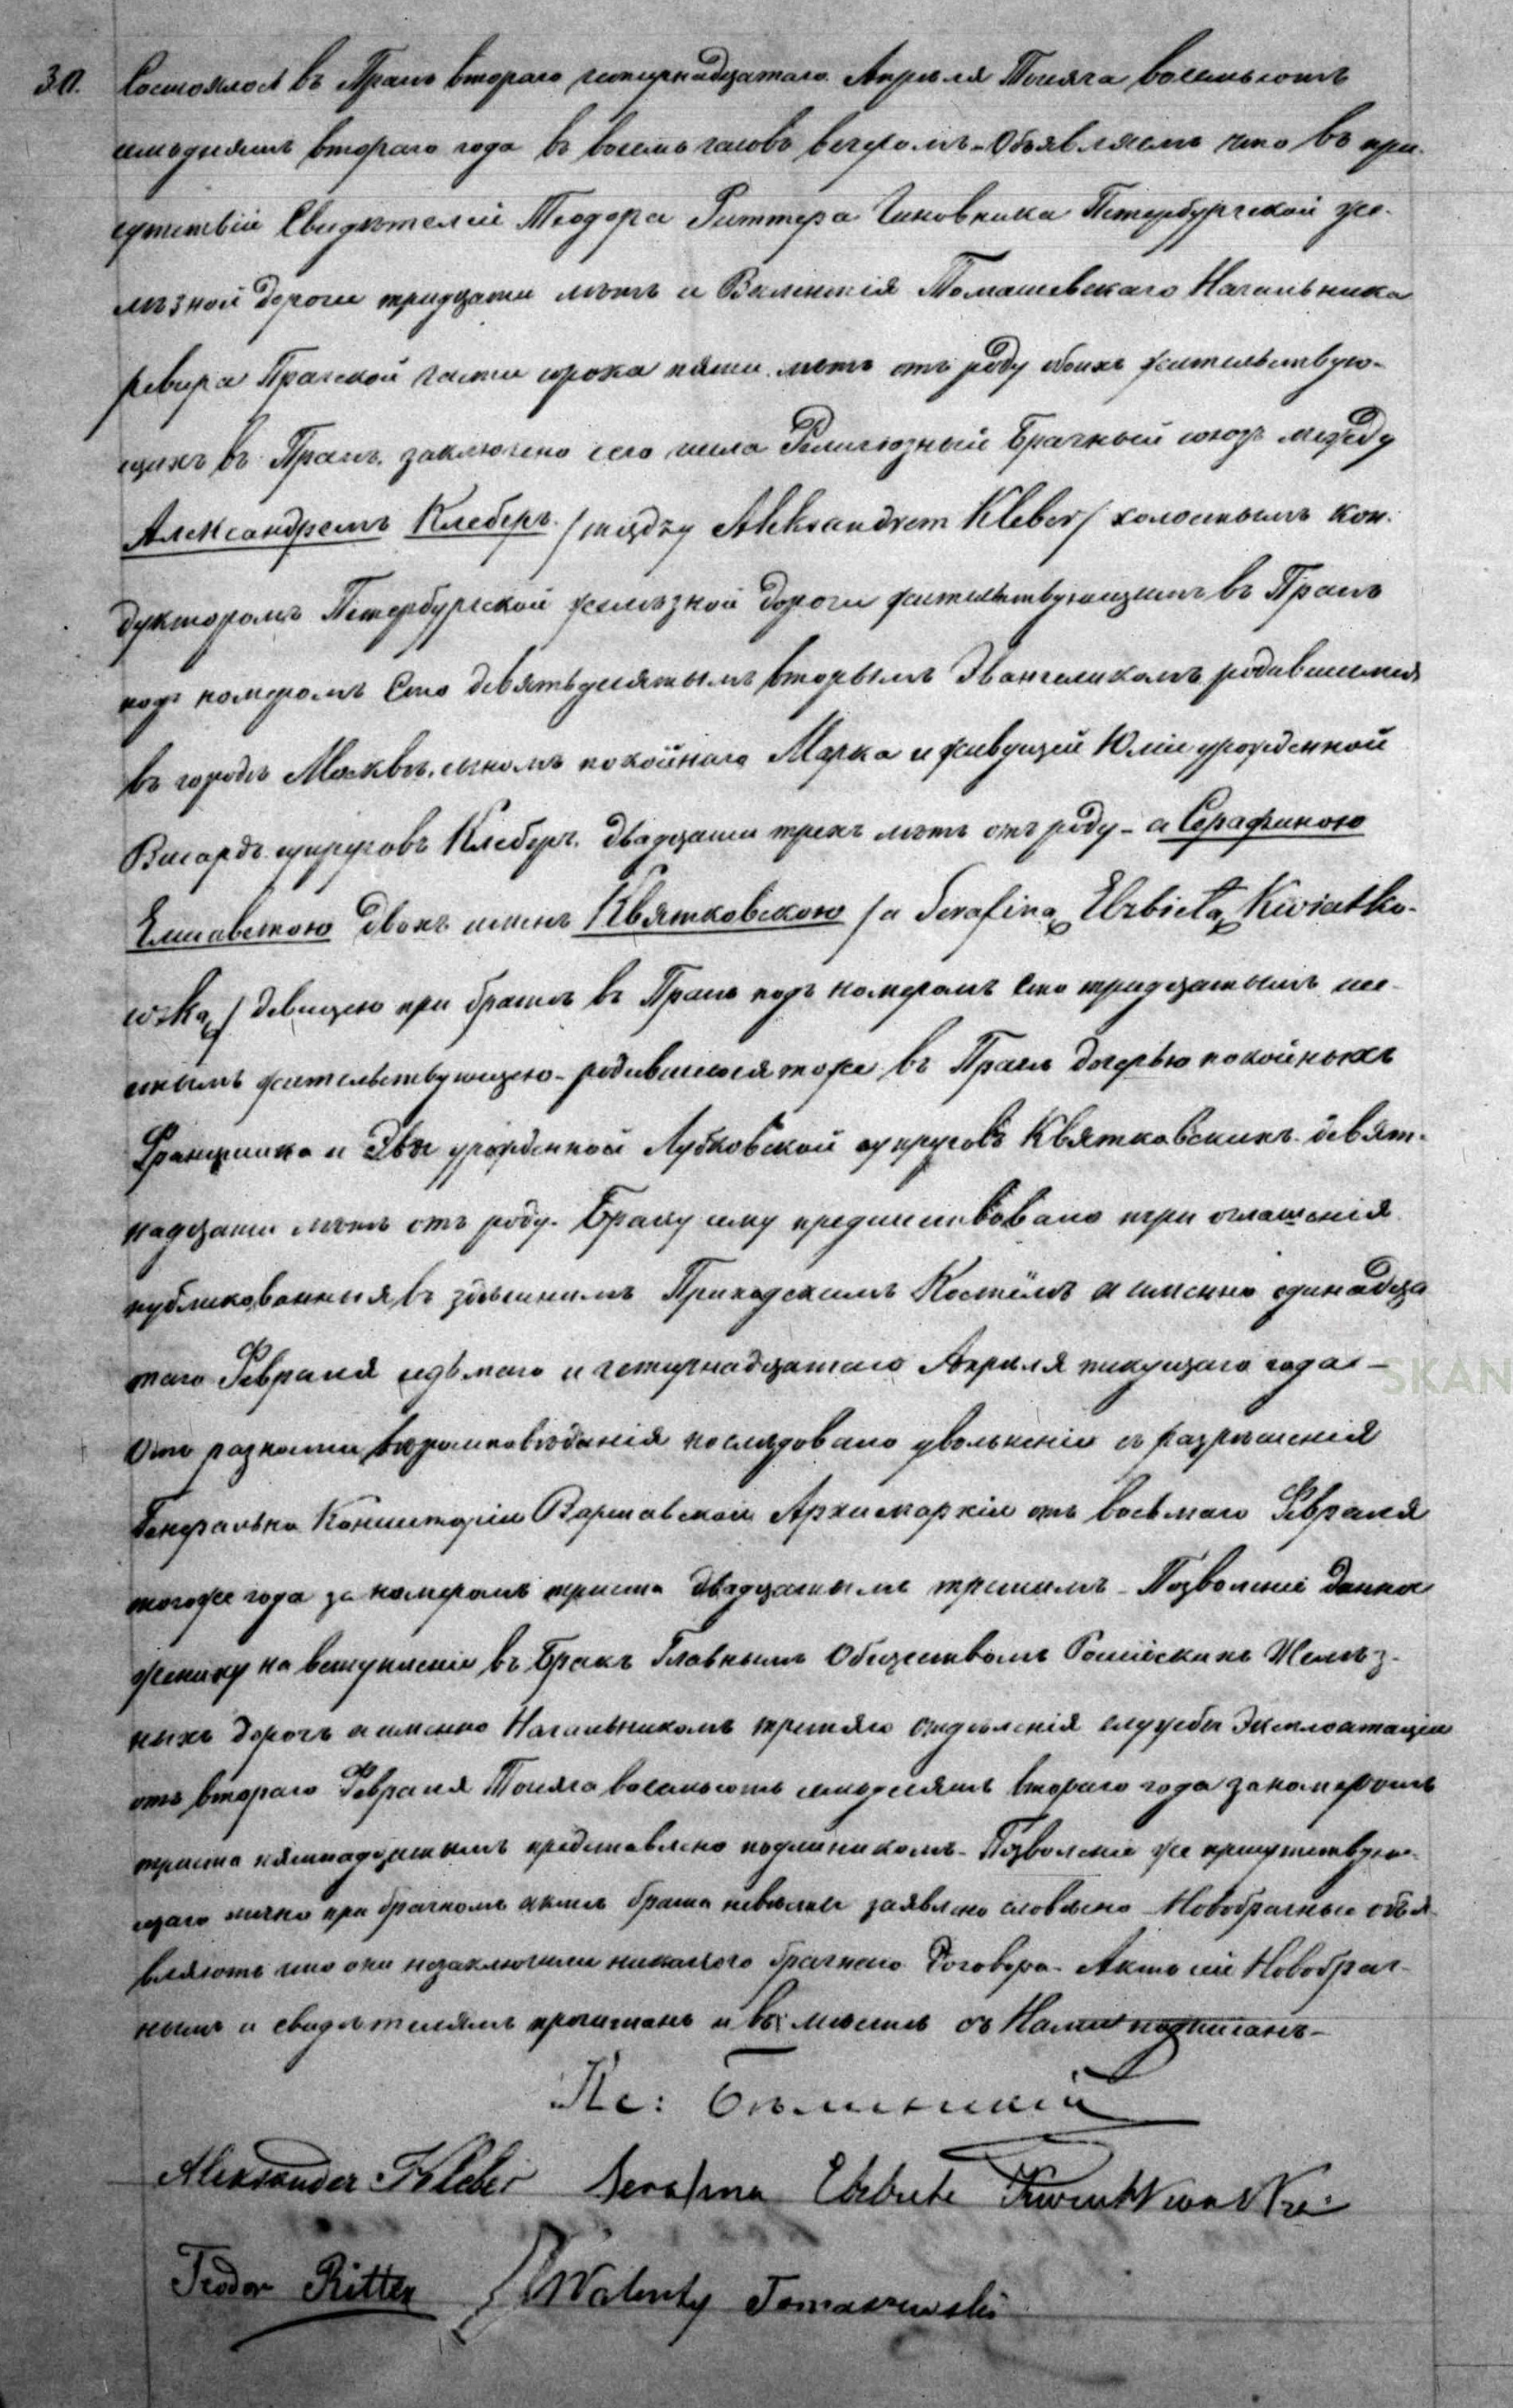 30. Состоялось въ Прагѣ втораго четырнадцатаго Апрѣля Тысяча восемьсотъ
семьдесятъ втораго года въ восемь часовъ вечеромъ. Объявляемъ что въ при-
сутствіи Свидѣтелей Теодора Риттера Чиновника Петербургской же-
лѣзной дороги тридцати лѣтъ и Валентія Томашевскаго Начальника
ревира Прагской части сорока пяти лѣтъ отъ роду обоихъ жительствую-
щихъ въ Прагѣ, заключено сего числа Религіозный Брачный союзъ между
Александремъ Клеберъ /między Aleksandrem Kleber/ холостымъ кон-
дукторомъ Петербургской желѣзной дороги жительствующимъ въ Прагѣ
подъ номеромъ Сто девятьдесятымъ вторымъ Эвангеликомъ родившимся
въ городѣ Москвѣ, сыномъ покойнаго Марка и живущей Юліи урожденной
Висардъ супруговъ Клеберъ, двадцати трехъ лѣтъ отъ роду - а Серафиною
Елисаветою двохъ именъ Квятковскою /a Serafiną Elżbietą Kwiatko-
wską/ девицею при братѣ въ Прагѣ подъ номеромъ Сто тридцатымъ ше-
стымъ жительствующею - родившеюся тоже въ Прагѣ дочерью покойныхъ
Францишка и Эвы урожденной Лубковской супруговъ Квятковскихъ девят-
надцати лѣтъ отъ роду. Браку сему предшествовало три оглашенія
публикованныя въ здѣшнимъ Приходскимъ Костёлѣ а именно единадца
таго Февраля седьмаго и четырнадцатаго Апрѣля текущаго года -
Отъ разности вѣроисповѣданія послѣдовало увольненіе съ разрѣшенія
Генеральна Консисторіи Варшавской Архиепархіи отъ восьмаго Февраля
тогоже года за номеромъ триста двадцатымъ третимъ - Позволеніе данное
жениху на вступленіе въ Бракъ Главнымъ Обществомъ Россійскихъ Желѣз-
ныхъ дорогъ а именно Начальникомъ третяго отдѣленія службы Эксплоатаціи
отъ втораго Февраля Тысяча восемьсотъ семьдесятъ втораго года за номеромъ
триста пятнадцатымъ представлено подлинникомъ - Позволеніе же присутствую-
щаго лично при брачномъ актѣ брата невѣсты заявлено словесно - Новобрачные объя-
вляютъ что они незаключили никакого брачнаго договора - Актъ сей Новобрач-
нымъ и свидѣтелямъ прочитанъ и вмѣстѣ съ Нами подписанъ -
Кс:
Aleksander Kleber Serafina Elżbieta Kwiatkowska
Teodor Ritter Walenty Tomaszewski
SKAN